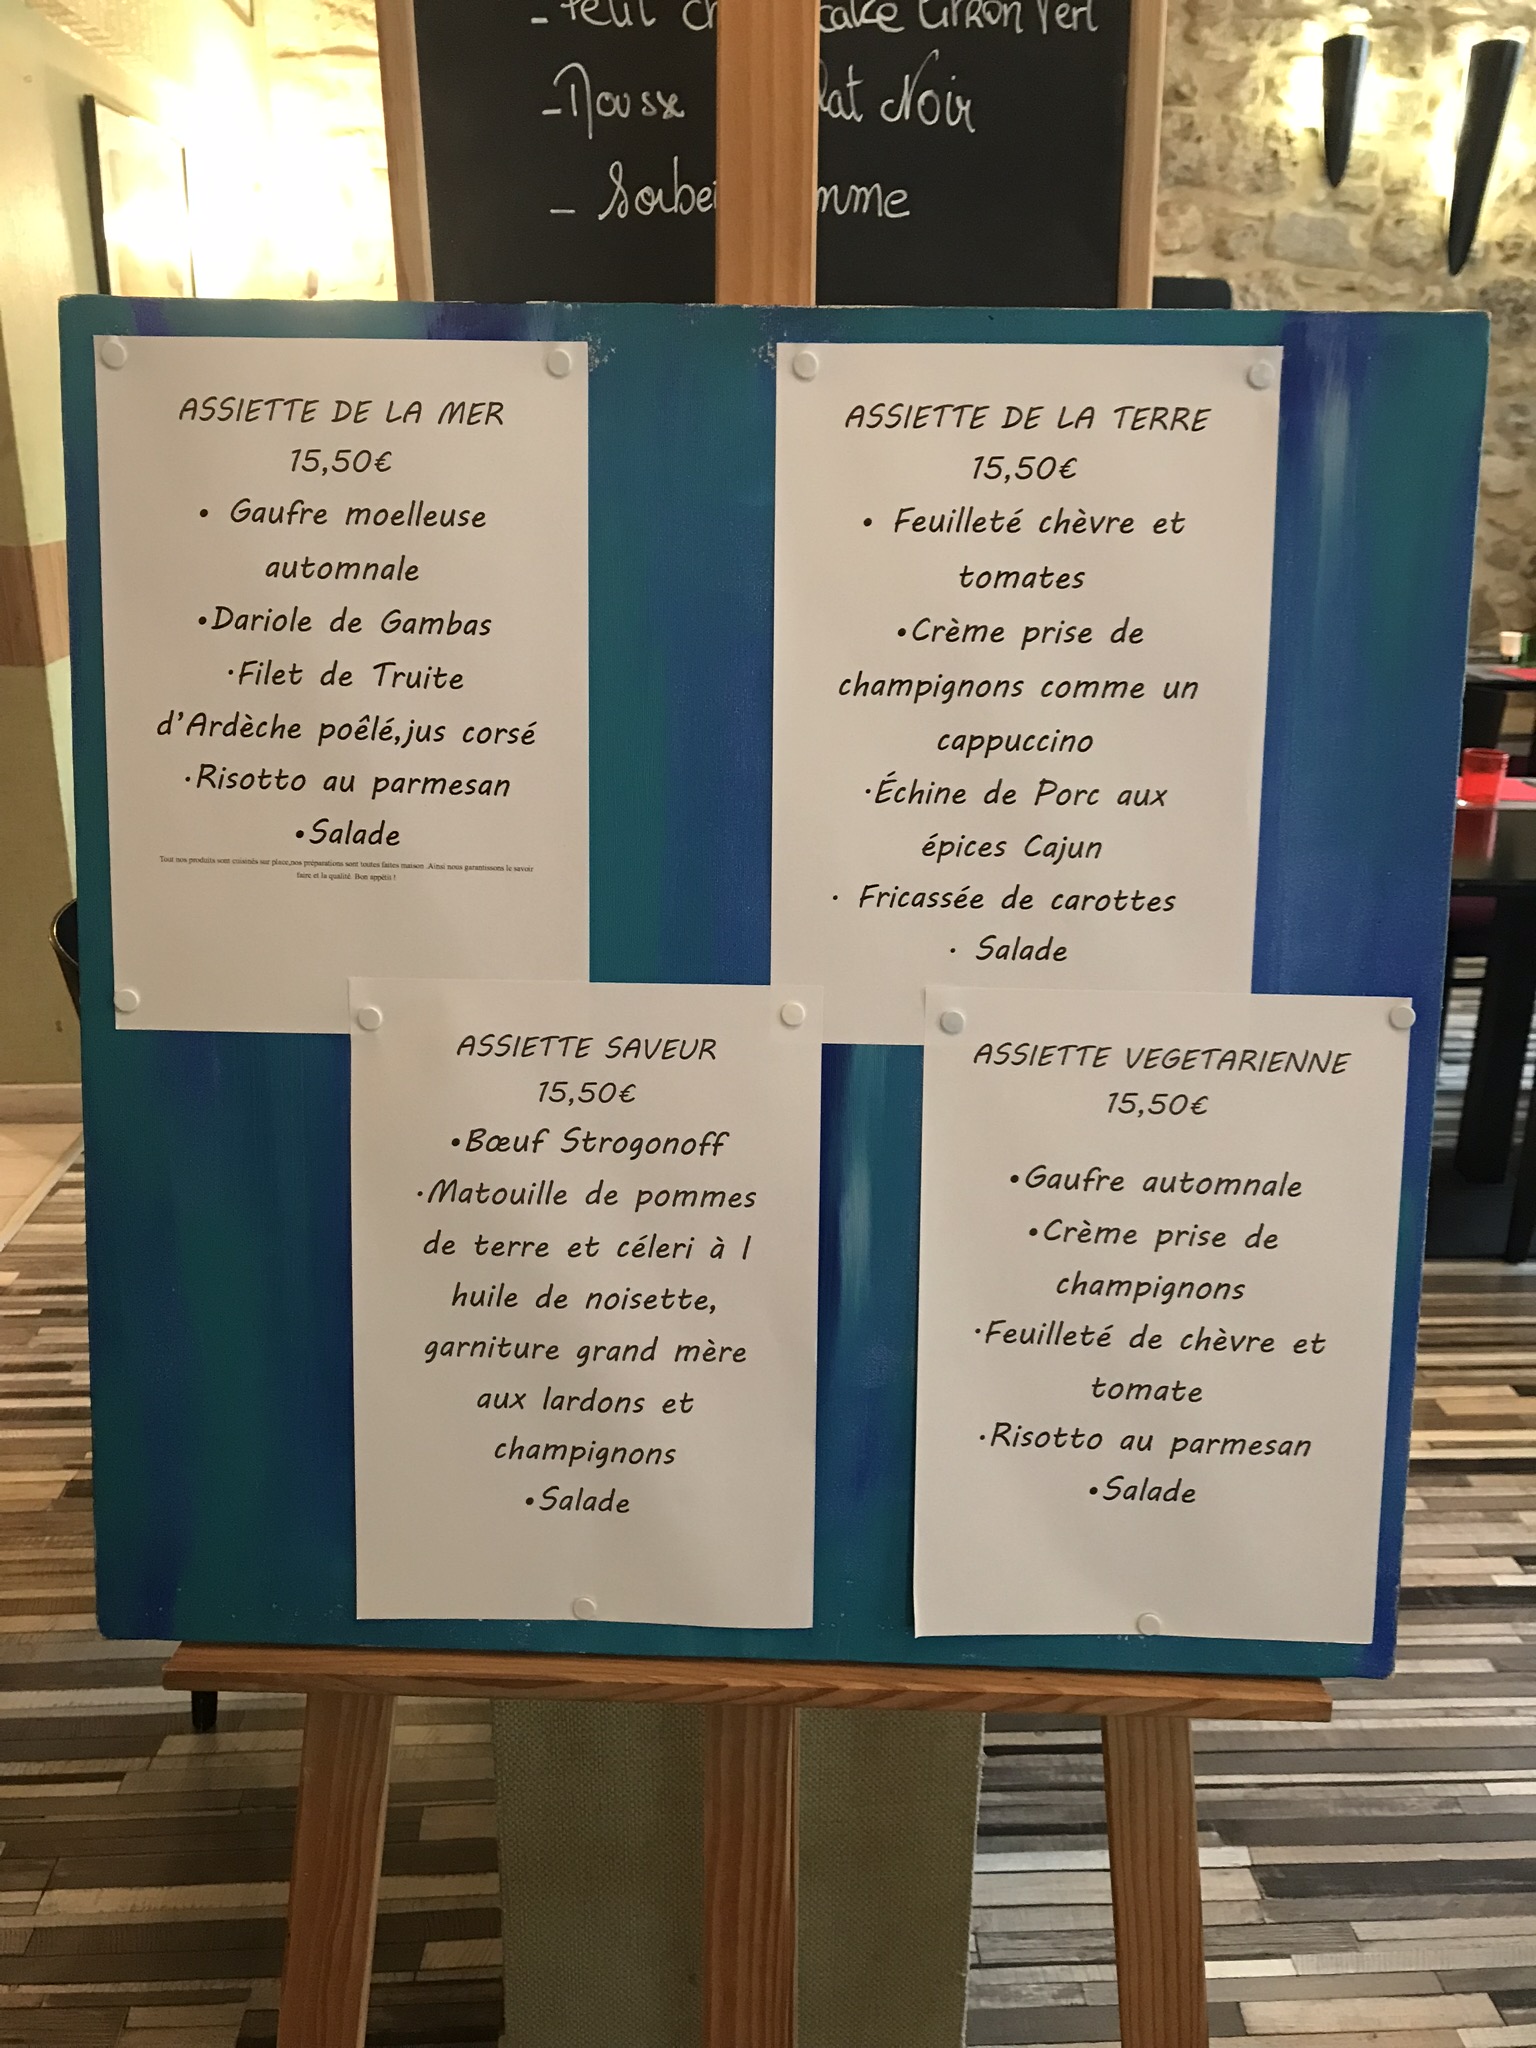 - Petit ch cake Citron Vert
- Mousse lat Noir
- Sorbet mme
ASSIETTE DE LA MER
15,50€
• Gaufre moelleuse
automnale
•Dariole de Gambas
·Filet de Truite
d'Ardèche poêlé,jus corsé
·Risotto au parmesan
•Salade
Tout nos produits sont cuisinés sur place,nos préparations sont toutes faites maison .Ainsi nous garantissons le savoir
faire et la qualité. Bon appétit !
ASSIETTE DE LA TERRE
15,50€
• Feuilleté chèvre et
tomates
•Crème prise de
champignons comme un
cappuccino
·Échine de Porc aux
épices Cajun
· Fricassée de carottes
· Salade
ASSIETTE SAVEUR
15,50€
•Bœuf Strogonoff
·Matouille de pommes
de terre et céleri à l
huile de noisette,
garniture grand mère
aux lardons et
champignons
•Salade
ASSIETTE VEGETARIENNE
15,50€
•Gaufre automnale
•Crème prise de
champignons
·Feuilleté de chèvre et
tomate
·Risotto au parmesan
•Salade